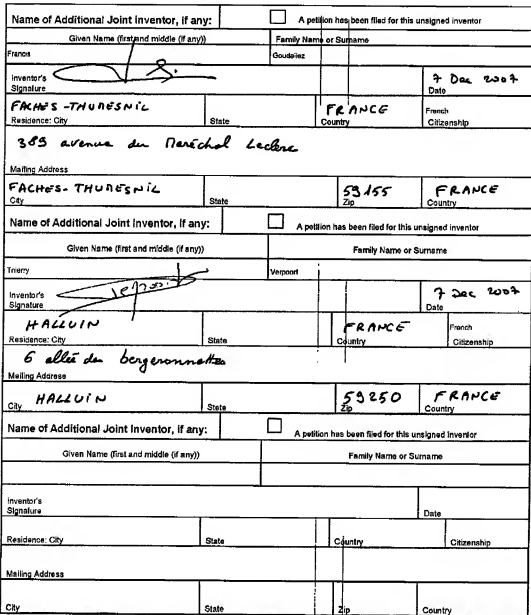 Name of Additional Joint Inventor, if any: A petition has been filed for this unsigned inventor
Given Name (first and middle (if any)) Family Name or Surname
Francis Goudaliez
Inventor's Signature 7 Dec 2007 Date
FACHES-THUMESNIL FRANCE French
Residence: City State Country Citizenship
389 avenue du Maréchal Leclerc
Mailing Address
FACHES-THUMESNIL 59155 FRANCE
City State Zip Country
Name of Additional Joint Inventor, if any: A petition has been filed for this unsigned inventor
Given Name (first and middle (if any)) Family Name or Surname
Thierry Verpoort
Inventor's Signature 7 Dec 2007 Date
HALLUIN FRANCE French
Residence: City State Country Citizenship
6 allée des bergeronnettes
Mailing Address
HALLUIN 59250 FRANCE
City State Zip Country
Name of Additional Joint Inventor, if any: A petition has been filed for this unsigned inventor
Given Name (first and middle (if any)) Family Name or Surname
Inventor's Signature Date
Residence: City State Country Citizenship
Mailing Address
City State Zip Country